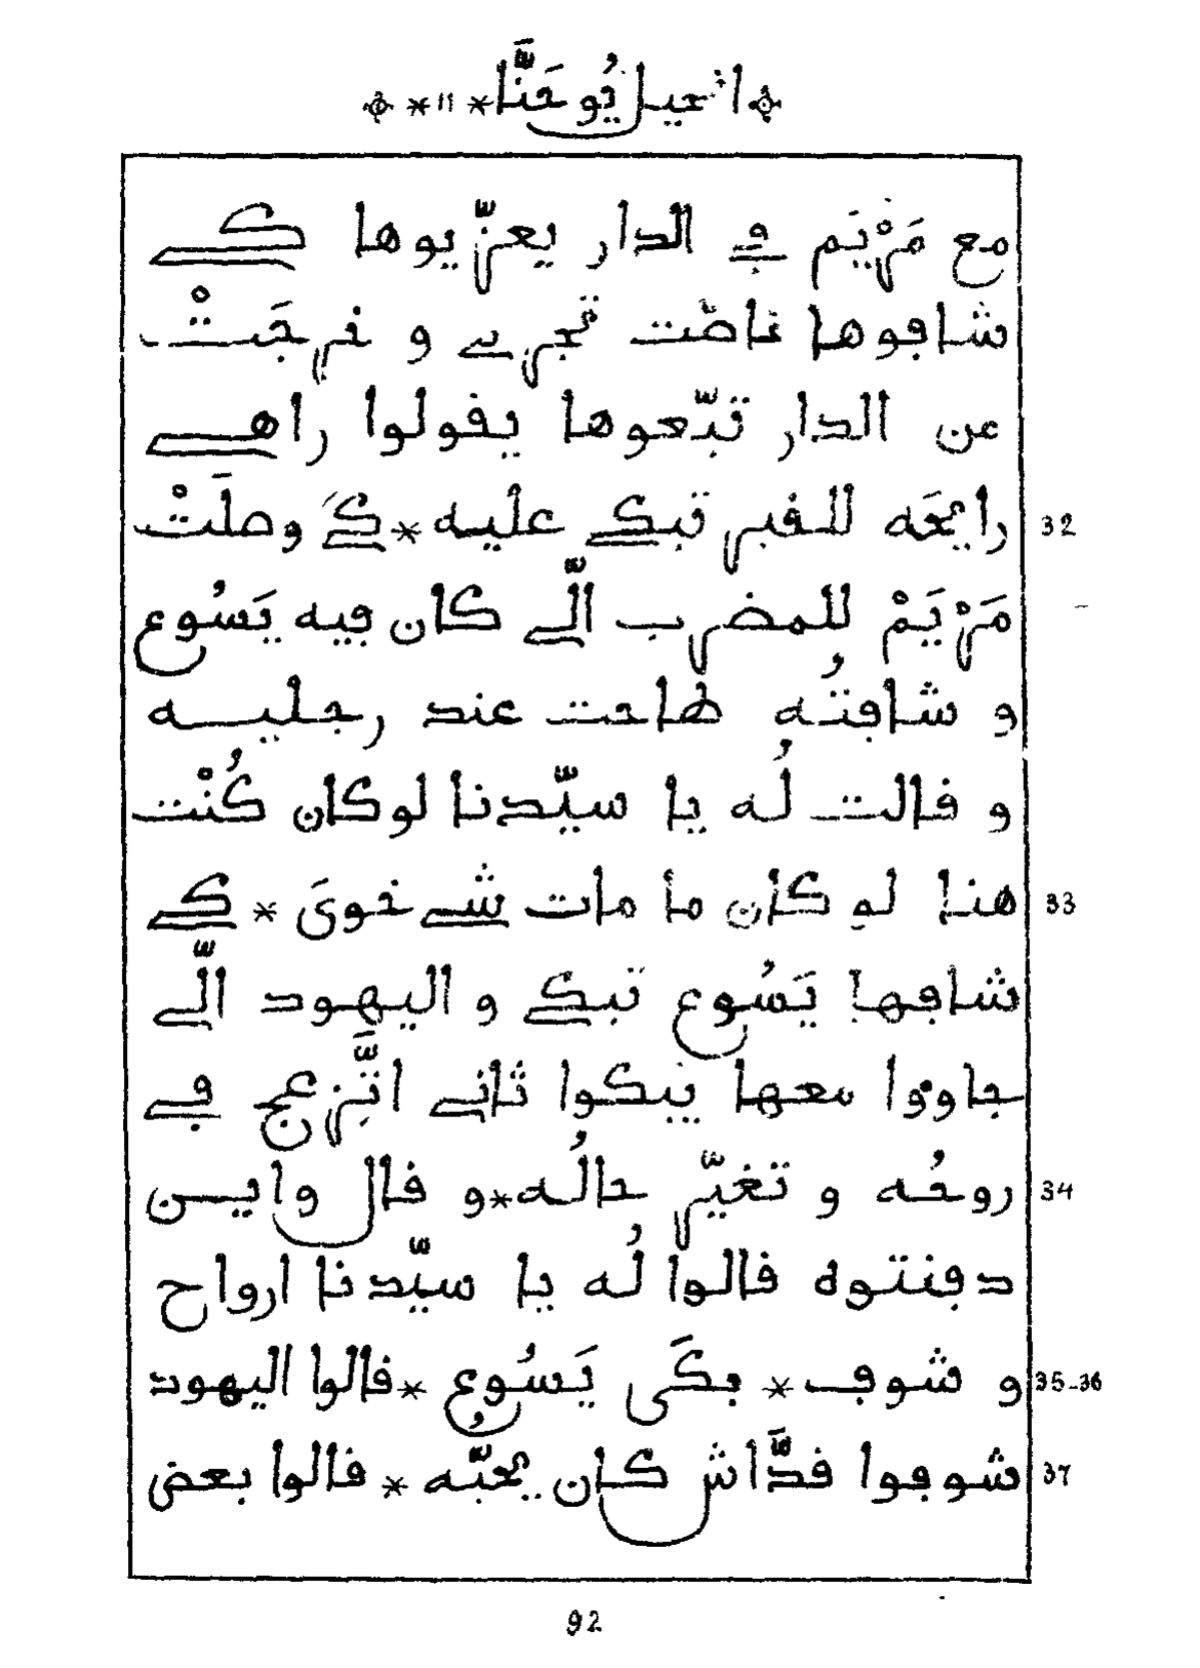 انجيل يُوحَنَّا * ١١ *
مع مَرْيَم في الدار يعزّيوها كي
شافوها ناضّت تجري و خرجَتْ
عن الدار تبّعوها يقولوا راهي
رايحَه للقبر تبكي عليه * كَي وصلَتْ 32
مَرْيَمْ للمضرب الّي كان فيه يَسُوع
و شافتُه طاحت عند رجليه
و قالت لُه يا سيّدنا لوكان كُنْت
هنا لو كان ما مات شي خويَ * كي 33
شافها يَسُوع تبكي و اليهود الّي
جاووا معها يبكوا ثاني اتَّزعج في
روحُه و تغيّر حالُه * و قال وايسن 34
دفنتوه قالوا لُه يا سيّدنا ارواح
و شوف * بكَى يَسُوع * قالوا اليهود 35-36
شوفوا قدَّاش كان يحبُّه * قالوا بعض 37
92